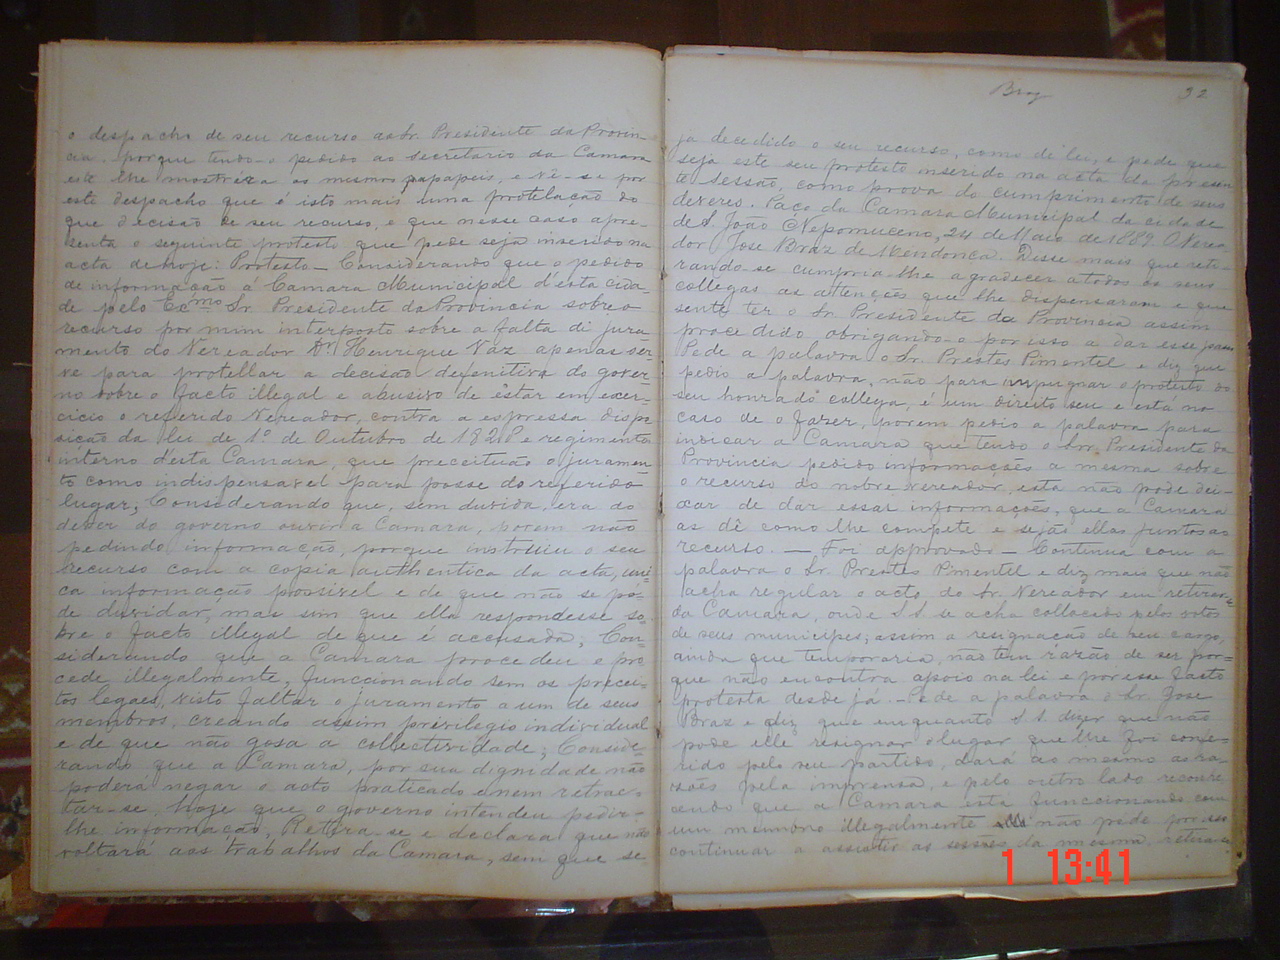 o despacho de seu recurso ao Sr. Presidente da Provin-
cia. porque tendo-o pedido ao secretario da Camara
este lhe mostrára os mesmos papapeis, e vê-se por
este despacho que é isto mais uma protelação do
que decisão de seu recurso, e que nesse caso apre-
senta o seguinte protesto que pede seja inserido na
acta de hoje: Protesto — Considerando que o pedido
de informação á Camara Municipal d'esta cida-
de pelo Ecmo Sr. Presidente da Provincia sobre o
recurso por mim interposto sobre a falta di jura-
mento do Vereador Dr. Henrique Vaz apenas ser-
ve para protellar a decisão defenitiva do gover-
no sobre o facto illegal e abusivo de estar em exer-
cicio o referido Vereador, contra a espressa dispo
sição da lei de 1º de Outubro de 1828 e regimento
interno d'esta Camara, que preceituão o juramen
to como indispensavel para posse do referido
lugar; Considerando que, sem duvida, era do
dever do governo ouvir a Camara, porem não
pedindo informação, porque instruiu o seu
recurso com a copia authentica da acta, uni-
ca informação possivel e de que não se po-
de duvidar, mas sim que ella respondesse so-
bre o facto illegal de que é accusada; Con-
siderando que a Camara procedeu e pro
cede illegalmente, funccionando sem os precei-
tos legaes, visto faltar o juramento a um de seus
membros, creando assim privilegio individual
e de que não gosa a collectividade; Conside-
rando que a Camara, por sua dignidade não
poderá negar o acto praticado e nem retrac-
tar-se, hoje que o governo intendeu pedir-
lhe informação, Retira-se e declara que não
voltará aos trabalhos da Camara, sem que se
Braz 32
ja decedido o seu recurso, como di lei, e pede que
seja este seu protesto inserido na acta da presen
te sessão, como prova do cumprimento de seus
deveres. Paço da Camara Municipal da cidade
de S. João Nepomuceno, 24 de Maio de 1889. O Verea
dor José Braz de Mendonca. Disse mais que reti-
rando-se cumpria-lhe agradecer a todos os seus
collegas as attenções que lhe dispensaram e que
sente ter o Sr. Presidente da Provincia assim
procedido obrigando-o por isso a dar esse passo
Pede a palavra o Sr. Prestes Pimentel e diz que
pedio a palavra, não para impugnar o protesto do
seu honrado collega, é um direito seu e está no
caso de o fazer, porem pedio a palavra para
indicar a Camara que tendo o Snr. Presidente da
Provincia pedido informações a mesma sobre
o recurso do nobre vereador, esta não pode dei-
xar de dar essas informações, que a Camara
as dê como lhe compete e sejão ellas juntas ao
recurso. — Foi approvado — Continua com a
palavra o Sr. Prestes Pimentel e diz mais que não
acha regular o acto do Sr. Vereador em retirar-se
da Camara, onde S.S. se acha collocado pelos votos
de seus municipes; assim a resignação de seu cargo,
ainda que temporaria, não tem razão de ser por-
que não encontra apoio na lei e por esse facto
protesta desde já. — Pede a palavra o Sr. José
Braz e diz, que enquanto S.S. dizer que não
pode elle resignar o lugar que lhe foi confe-
rido pelo seu partido, dará ao mesmo as ra-
zões pela imprensa, e pelo outro lado reconhe
cendo que a Camara está funccionando com
um membro illegalmente não pode por isso
continuar a assistir as sessões da mesma, retira-se
1 13:41